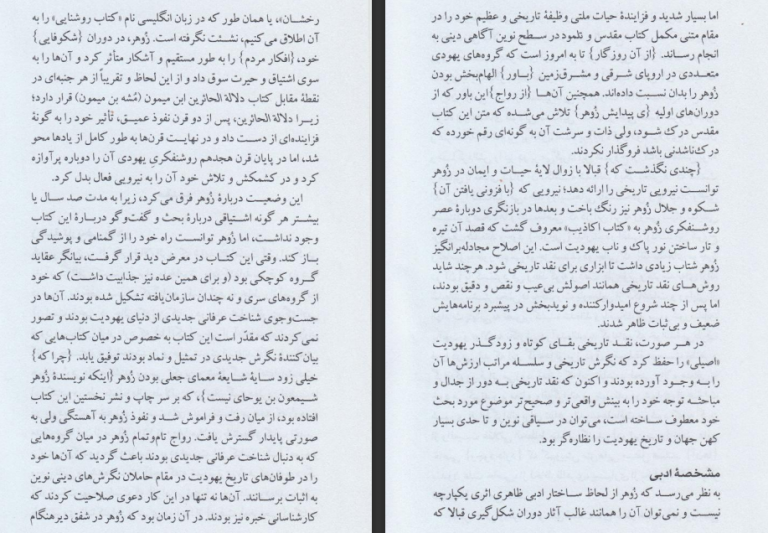 اما بسیار شدید و فزایندهٔ حیات ملی وظیفهٔ تاریخی و عظیم خود را در
مقام متنی مکمل کتاب مقدس و تلمود در سطح نوین آگاهی دینی به
انجام رساند. {از آن روزگار} تا به امروز است که گروه‌های یهودی
متعددی در اروپای شرقی و مشرق‌زمین {باور} الهام‌بخش بودن
زُوهر را بدان نسبت داده‌اند. همچنین آن‌ها {از رواج} این باور که از
دوران‌های اولیه {ی پیدایش زُوهر} تلاش می‌شده که متن این کتاب
مقدس درک شود، ولی ذات و سرشت آن به گونه‌ای رقم خورده که
درک‌ناشدنی باشد فروگذار نکردند.
{چندی نگذشت که} قبالا با زوال لایهٔ حیات و ایمان در زُوهر
توانست نیرویی تاریخی را ارائه دهد؛ نیرویی که {با فزونی یافتن آن}
شکوه و جلال زُوهر نیز رنگ باخت و بعدها در بازنگری دوبارهٔ عصر
روشنفکری زُوهر به «کتاب اکاذیب» معروف گشت که قصد آن تیره
و تار ساختن نور پاک و ناب یهودیت است. این اصلاح مجادله‌برانگیز
زُوهر شتاب زیادی داشت تا ابزاری برای نقد تاریخی شود. هرچند شاید
روش‌های نقد تاریخی همانند اصولش بی‌عیب و نقص و دقیق بودند،
اما پس از چند شروع امیدوارکننده و نویدبخش در پیشبرد برنامه‌هایش
ضعیف و بی‌ثبات ظاهر شدند.
در هر صورت، نقد تاریخی بقای کوتاه و زودگذر یهودیت
«اصیلی» را حفظ کرد که نگرش تاریخی و سلسله مراتب ارزش‌ها آن
را به وجود آورده بودند و اکنون که نقد تاریخی به دور از جدال و
مباحثه توجه خود را به بینش واقعی‌تر و صحیح‌تر موضوع مورد بحث
خود معطوف ساخته است، می‌توان در سیاقی نوین و تا حدی بسیار
کهن جهان و تاریخ یهودیت را نظاره‌گر بود.
مشخصهٔ ادبی
به نظر می‌رسد که زُوهر از لحاظ ساختار ادبی ظاهری اثری یکپارچه
نیست و نمی‌توان آن را همانند غالب آثار دوران شکل‌گیری قبالا که
رخشان»، یا همان طور که در زبان انگلیسی نام «کتاب روشنایی» را به
آن اطلاق می‌کنیم، نشئت نگرفته است. زُوهر، در دوران {شکوفایی}
خود، {افکار مردم} را به طور مستقیم و آشکار متأثر کرد و آن‌ها را به
سوی اشتیاق و حیرت سوق داد و از این لحاظ و تقریباً از هر جنبه‌ای در
نقطهٔ مقابل کتاب دلالة الحائرین ابن میمون (مُشه بن میمون) قرار دارد؛
زیرا دلالة الحائرین، پس از دو قرن نفوذ عمیق، تأثیر خود را به گونهٔ
فزاینده‌ای از دست داد و در نهایت قرن‌ها به طور کامل از یادها محو
شد، اما در پایان قرن هجدهم روشنفکری یهودی آن را دوباره پرآوازه
کرد و در کشمکش و تلاش خود آن را به نیرویی فعال بدل کرد.
این وضعیت دربارهٔ زُوهر فرق می‌کرد، زیرا به مدت صد سال یا
بیشتر هر گونه اشتیاقی دربارهٔ بحث و گفت‌وگو دربارهٔ این کتاب
وجود نداشت، اما زُوهر توانست راه خود را از گمنامی و پوشیدگی
باز کند. وقتی این کتاب در معرض دید قرار گرفت، بیانگر عقاید
گروه کوچکی بود (و برای همین عده نیز جذابیت داشت) که خود
از گروه‌های سری و نه چندان سازمان‌یافته تشکیل شده بودند. آن‌ها در
جست‌وجوی شناخت عرفانی جدیدی از دنیای یهودیت بودند و تصور
نمی‌کردند که مقدّر است این کتاب به خصوص در میان کتاب‌هایی که
بیان‌کنندهٔ نگرش جدیدی در تمثیل و نماد بودند توفیق یابد. {چرا که}
خیلی زود سایهٔ شایعهٔ معمای جعلی بودن زُوهر {اینکه نویسندهٔ زُوهر
شیمعون بن یوحای نیست}، که بر سر چاپ و نشر نخستین این کتاب
افتاده بود، از میان رفت و فراموش شد و نفوذ زُوهر به آهستگی ولی به
صورتی پایدار گسترش یافت. رواج تام‌وتمام زُوهر در میان گروه‌هایی
که به دنبال شناخت عرفانی جدیدی بودند باعث گردید که آن‌ها خود
را در طوفان‌های تاریخ یهودیت در مقام حاملان نگرش‌های دینی نوین
به اثبات برسانند. آن‌ها نه تنها در این کار دعوی صلاحیت کردند که
کارشناسانی خبره نیز بودند. در آن زمان بود که زُوهر در شفق دیرهنگام